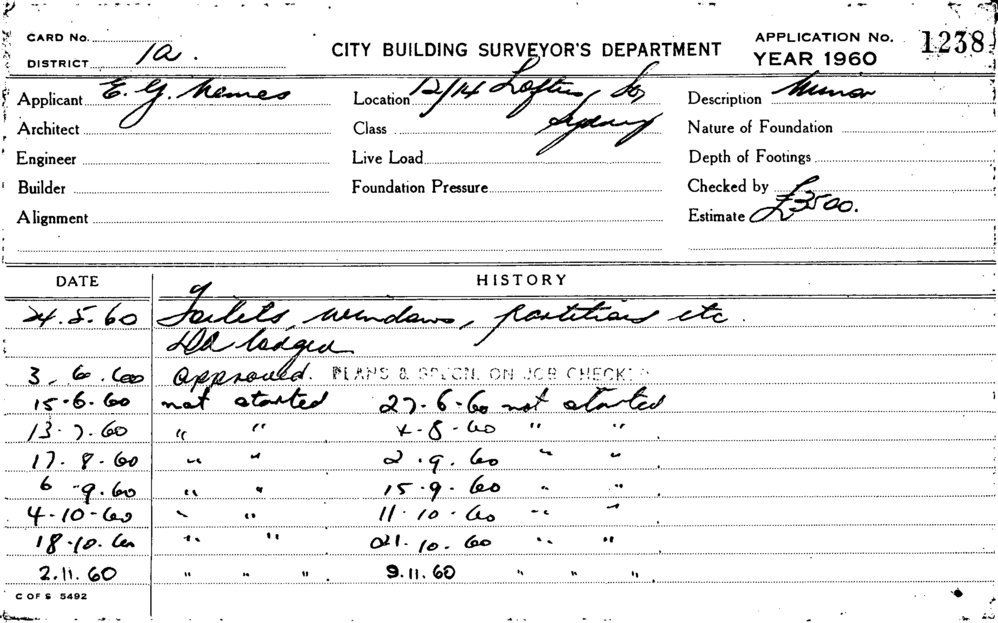 CARD No.
CITY BUILDING SURVEYOR'S DEPARTMENT
APPLICATION No. 1238
DISTRICT 1a.
YEAR 1960
Applicant E. G. Nemes
Location 12/14 Loftus St,
Sydney
Description Minor
Architect
Class
Nature of Foundation
Engineer
Live Load
Depth of Footings
Builder
Foundation Pressure
Checked by
Alignment
Estimate £3500.
DATE HISTORY
24.5.60 Toilets, windows, partitions etc
DA lodged
3.6.60 approved. PLANS & SPECN. ON JOB CHECKED
15-6-60 not started 27-6-60 not started
13-7-60 " " 4-8-60 " "
17-8-60 " " 2.9.60 " "
6-9-60 " " 15-9-60 " "
4-10-60 " " 11-10-60 " "
18-10-60 " " 21.10.60 " "
2.11.60 " " " 9.11.60 " " "
C OF S 5492